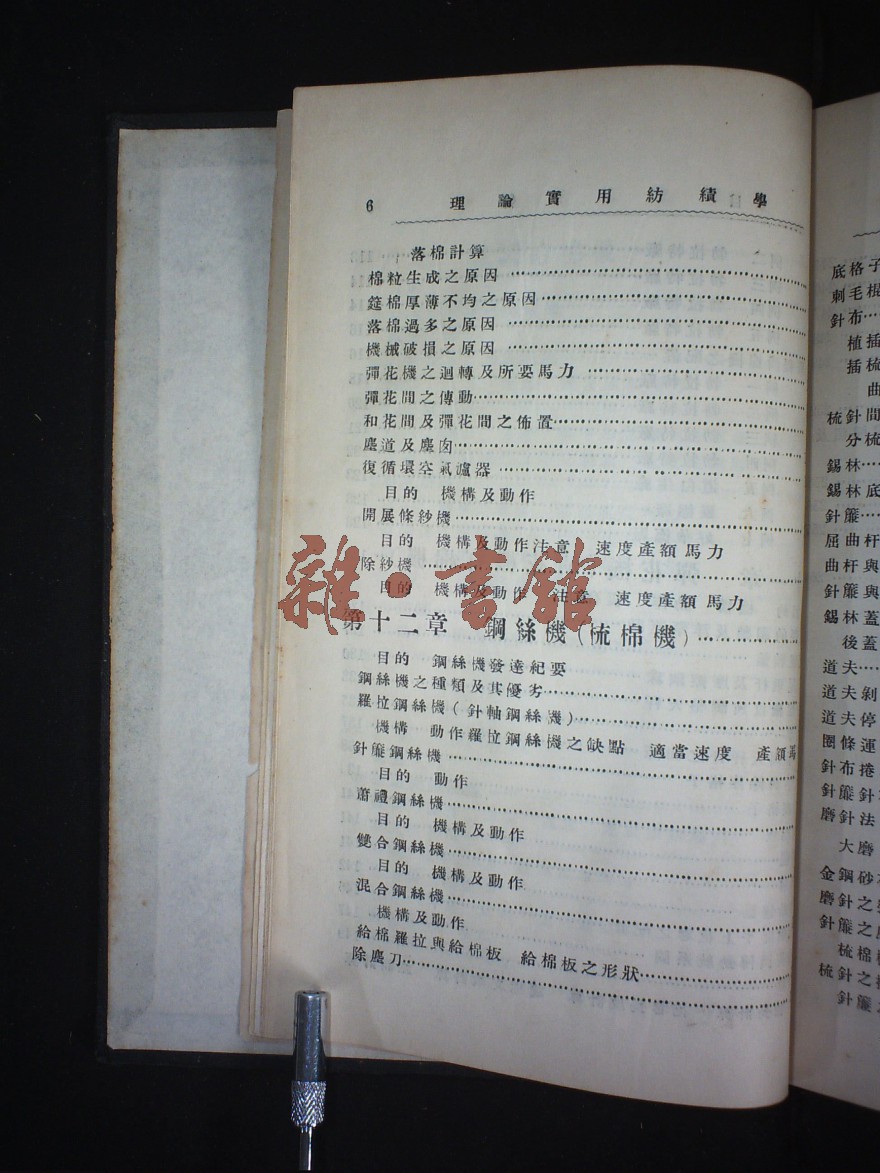 6 理論實用紡績學
落棉計算
棉粒生成之原因
筵棉厚薄不均之原因
落棉過多之原因
機械破損之原因
彈花機之迴轉及所要馬力
彈花間之傳動
和花間及彈花間之佈置
塵道及塵囪
復循環空氣濾器
目的 機構及動作
開展條紗機
目的 機構及動作注意 速度產額馬力
除紗機
目的 機構及動作 注意 速度產額馬力
第十二章 鋼絲機(梳棉機)
目的 鋼絲機發達紀要
鋼絲機之種類及其優劣
羅拉鋼絲機(針軸鋼絲機)
機構 動作羅拉鋼絲機之缺點 適當速度 產額馬
針簾鋼絲機
目的 動作
蕭禮鋼絲機
目的 機構及動作
雙合鋼絲機
目的 機構及動作
混合鋼絲機
機構及動作
給棉羅拉與給棉板 給棉板之形狀
除塵刀
雜·書館
底格子
刺毛棍
針布
植插
插梳
曲
梳針間
分梳
錫林
錫林底
針簾
屈曲杆
曲杆與
針簾與
錫林蓋
後蓋
道夫
道夫剝
道夫停
圈條運
針布捲
針簾針
磨針法
大磨
金鋼砂
磨針之
針簾之
梳棉
梳針之
針簾